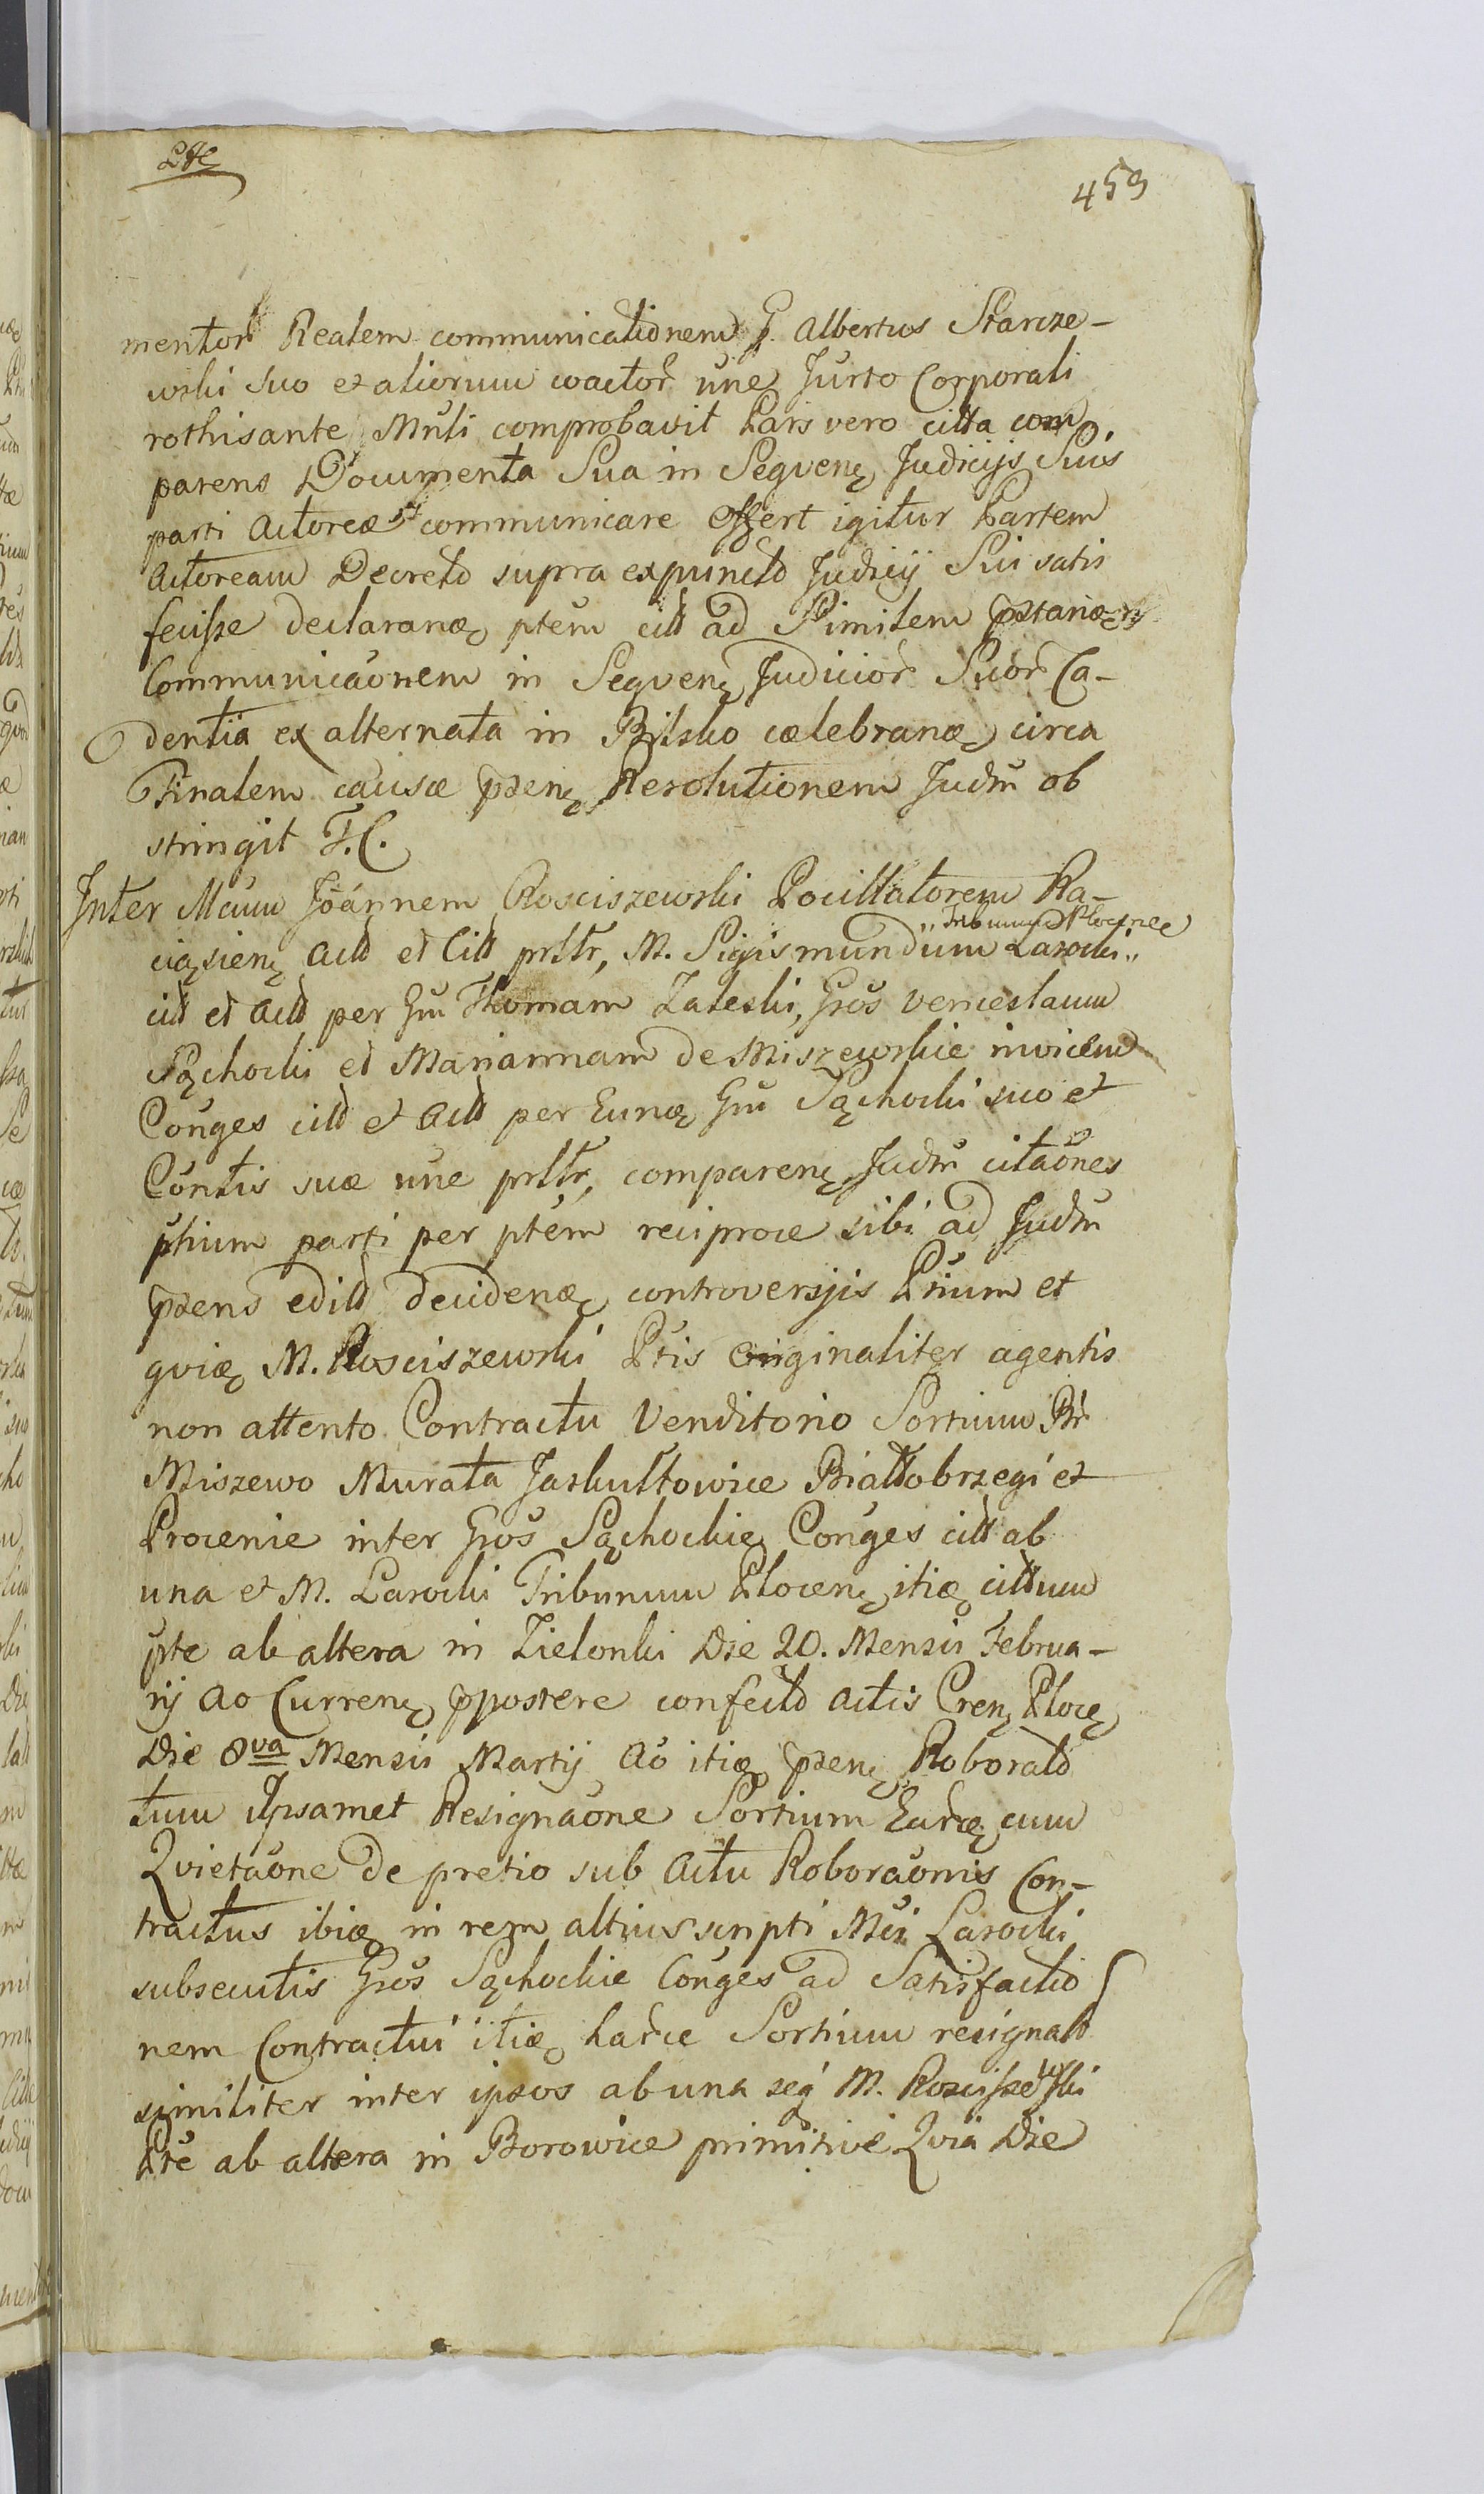 459
mentor Realem communicationem G. Albertus Starcze-
wski suo et aliorum coactor ūne Jurto Corporali
rothisante Mnli comprobavit Pars vero citta com
parens Documenta Sua in Seqvenę Judicijs Suis
parti Actoreæ communicare offert igitur Partem
Actoream Decreto supra expuncto Judicij Sui satis
fecisse declaranæ ptem citt ad Similem
Communicaōnem in Seqvenę Judicior Suor Ca-
dentia ex alternata in Bilsko cælebranæ circa
Finalem causæ przenę Resolutionem Judm ob
stringit F.C.
Inter Mcum Joannem Rosciszewski Pocillatorem Ra-
ciązienę Actt et Citt prltr, M. Sigismundum Lasocki „
„ Tribunum Plocense
citt et Actt per Gm Thomam Zaleski, Gros Venceslaum
Sąchocki et Mariannam de Miszewskie invicem
Conges citt et Actt per Eunæ Gm Sąchocki suo et
Contis suæ ūne prltr, comparenę Judm citaōnes
ptium parti per ptem reciproce sibi ad Judm
przens editt decidenæ controversijs Ptium et
qviæ M. Rosciszewski Ptis Originaliter agentis
non attento Contractu Venditorio Sortium Br
Miszewo Murata Jaskultowice Białłobrzegi et
Procenie inter Gros Sąchockie Conges citt ab
una et M. Lasocki Tribunum Plocenę itiæ cittum
pte ab altera in Zielonki Die 20. Mensis Februa-
rij Ao Currenę ppostere confectd Actis Crenę Plocę
Die 8va Mensis Martij Ao itiæ przenę Roboratd
tum Ipsamet Resignaōne Sortium Earđę cum
Qvietaōne de pretio sub Actu Roboraōnis Con-
tractus ibiæ in rem altius scripti Mci Lasocki
subsecutis Gros Sąchockie Conges ad Satisfactio
nem Contractui itiæ harce Sortium resignatt
similiter inter ipsos ab una seq M. Roscissewski
Pte ab altera in Borowice primitive Qvia Die